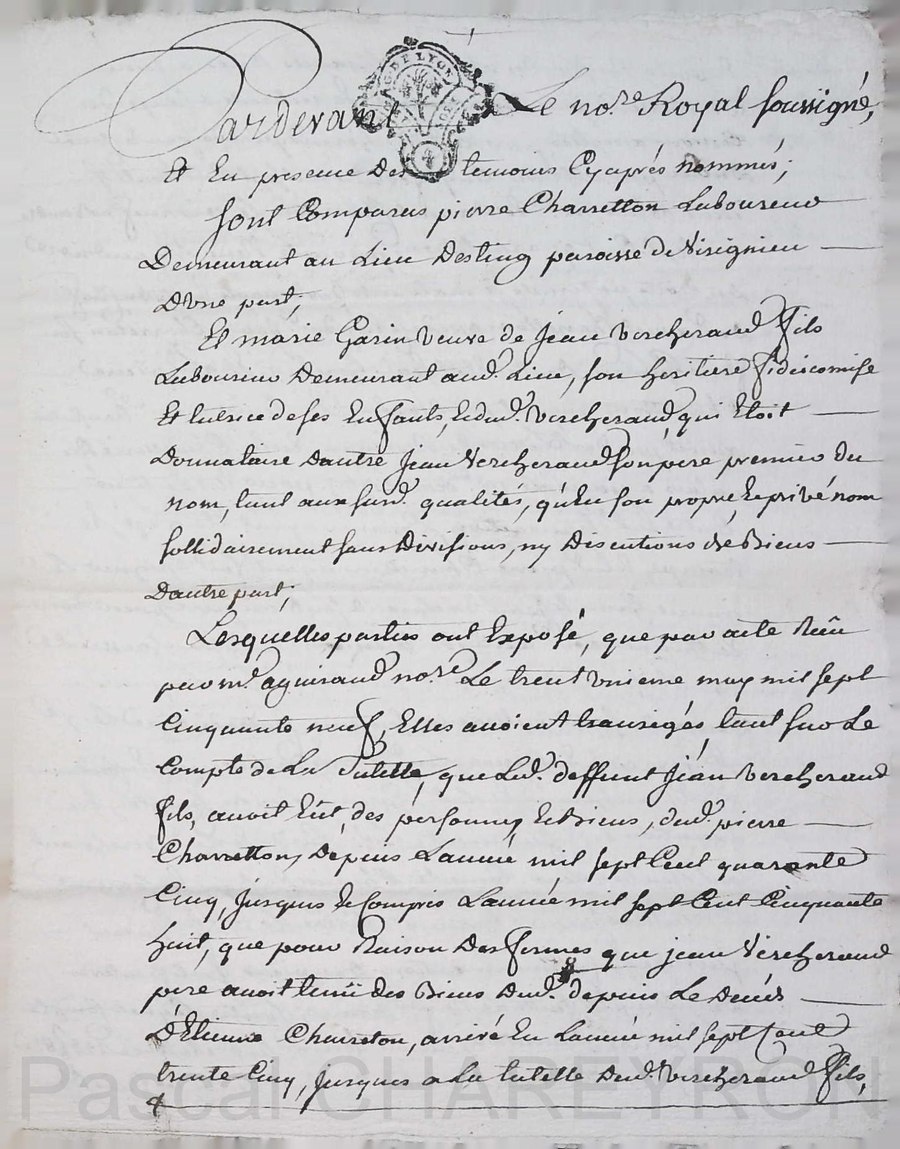 Pardevant Le no.re Royal soussigné,
Et En presence Des temoins Cyaprés nommés;
sont Comparus pierre Charretton Laboureur
Demeurant au Lieu Desting paroisse de Virignieu
D'Une part;
Et marie Garin veuve de Jean Vercherand fils
Laboureur Demeurant aud. Lieu, son heritiere fideicomise
Et tutrice de ses Enfants, Et dud. Vercherand, qui Etoit
Donnataire Dautre Jean Vercherand son pere premier du
nom, tant aux susd. qualités, qu'En son propre Et privé nom
sollidairement sans Divisions, ny Discutions de Biens
Dautre part;
Lesquelles parties ont Exposé, que par acte Reçu
par m.e aguiraud no.re Le trent Unieme may mil sept
Cinquante neuf, Elles avoient transigés, tant sur Le
Compte de La Tutelle, que Led. deffunt Jean Vercherand
fils, avoit Eüe, des personnes Et Biens, dud. pierre
Charretton, Depuis L'année mil sept Cent quarante
Cinq, Jusques Et Compris L'année mil sept Cent Cinquante
huit, que pour Raison Des fermes que jean Vercherand
pere avoit tenüe des Biens Dud. depuis Le Decés
D'Etienne Charreton, arrivé En L'année mil sept Cent
trente Cinq, Jusques a La tutelle Dud. Vercherand fils,
Pascal CHAREYRON